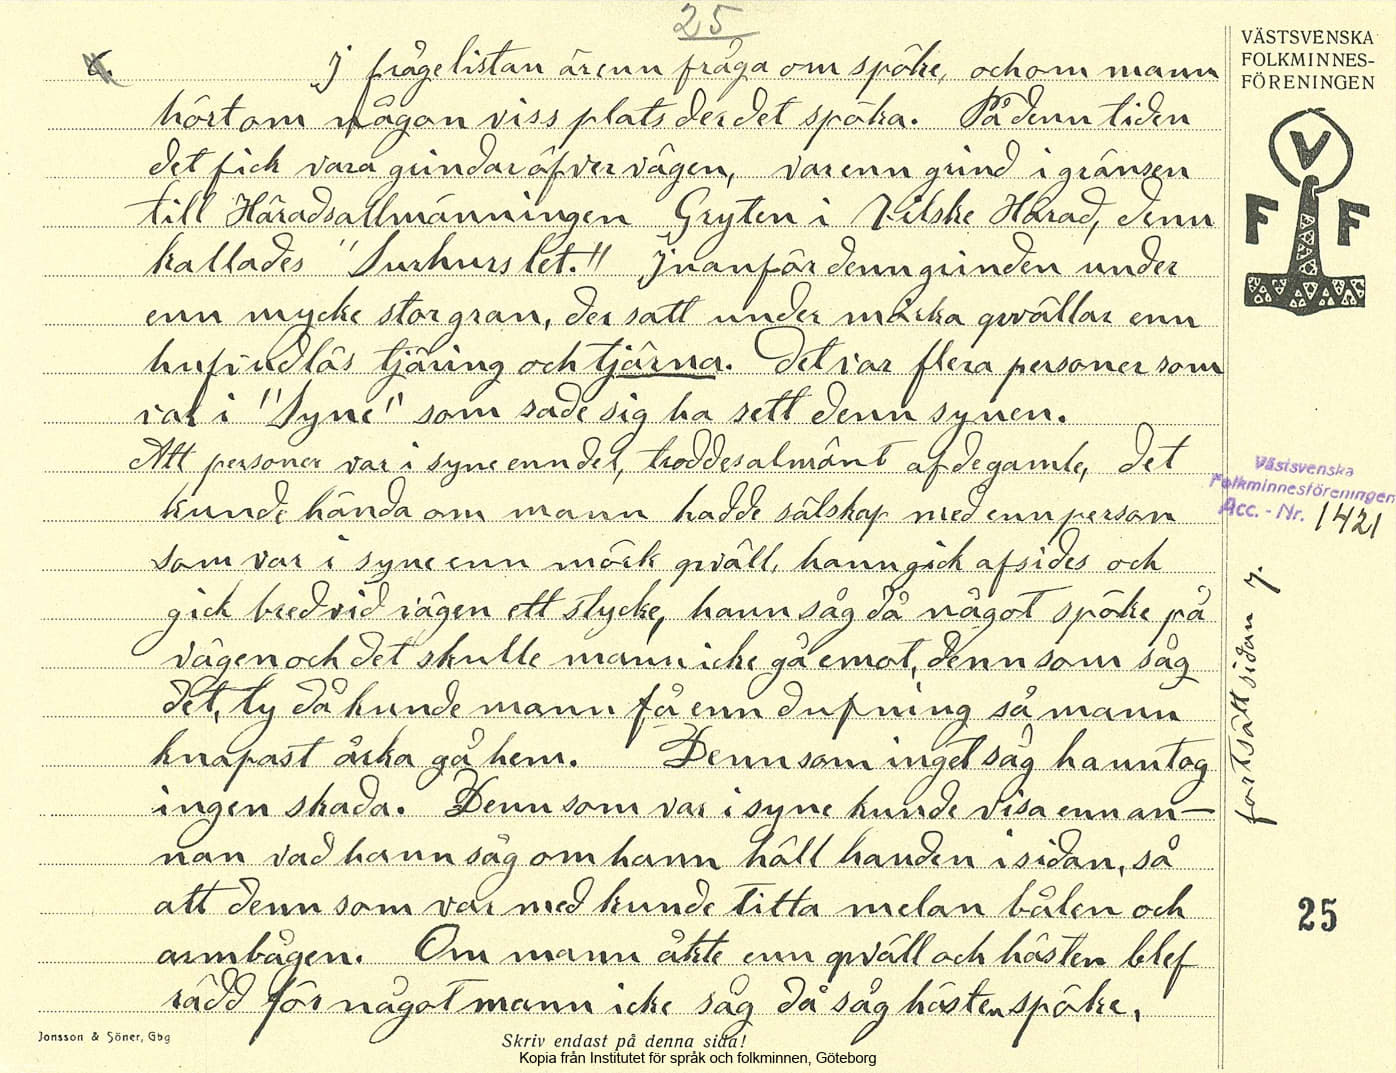 25
VÄSTSVENSKA
FOLKMINNES-
FÖRENINGEN
6.
J frågelistan ärenn fråga om spöke, ochom mann
hört om någon viss plats der det spöka. På denn tiden
det fick vara grindar öfver vägen, var enn grind i gränsen
till Häradsallmänningen Gryten i Vilske Härad, denn
kallades "Surhurslet." Jnanför denn grinden under
enn mycke stor gran, der satt under mörka qvällar enn
hufvudlös tjäring och tjärna. Det var flera personer som
var i "Syne" som sade sig ha sett denn synen.
Att personer var i syne enn del, troddes almänt af de gamle, det
kunde hända om mann hadde sälskap med enn person
som var i syne enn mörk qväll, hann gick afsides och
gick bredvid vägen ett stycke, hann såg då något spöke på
vägen och det skulle mann icke gå emot, denn som såg
det, ty då kunde mann få enn dufning så mann
knapast årka gå hem. Denn som inget såg hann tog
ingen skada. Denn som var i syne kunde visa enn an—
nan vad hann såg om hann höll handen i sidan, så
att denn som var med kunde titta melan bålen och
armbågen. Om mann åkte enn qväll och hästen blef
rädd för något mann icke såg då såg hästen spöke,
V
F F
Västsvenska
Folkminnesföreningen
Acc. - Nr. 1421
fortsätt sidan 7.
25
Jonsson & Söner, Gbg
Skriv endast på denna sida!
Kopia från Institutet för språk och folkminnen, Göteborg